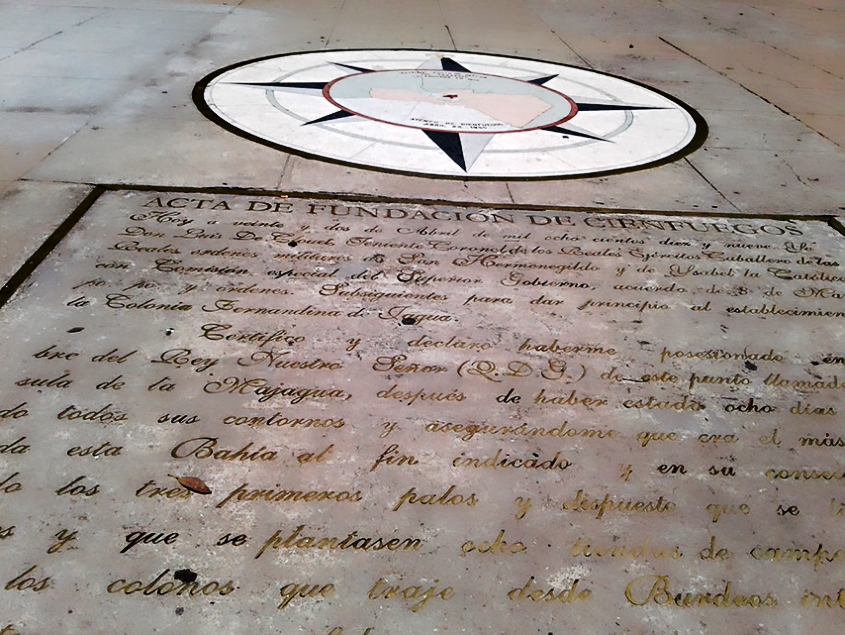 ATENEO DE CIENFUEGOS
ABRIL 22,
ACTA DE FUNDACIÓN DE CIENFUEGOS
Hoy a veinte y dos de Abril de mil ocho cientos diez y nueve
Don Luis De Clouet Teniente Coronel de los Reales Ejércitos Caballero de las
Reales ordenes militares de San Hermenegildo y de Ysabel la Católica
con Comisión especial del Superior Gobierno, acuerdo de de
y ordenes. Subsiguientes para dar principio al establecimien
la Colonia Fernandina de Jagua.
Certifico y declaro haberme posesionado en
bre del Rey Nuestro Señor (Q.D.G.) de este punto llamado
sula de la Majagua, después de haber estado ocho días
do todos sus contornos y asegurándome que era el más
da esta Bahía al fin indicado y en su consec
lo los tres primeros palos y dispuesto que se
s y que se plantasen ocho tiendas de campa
los colonos que traje desde Burdeos int